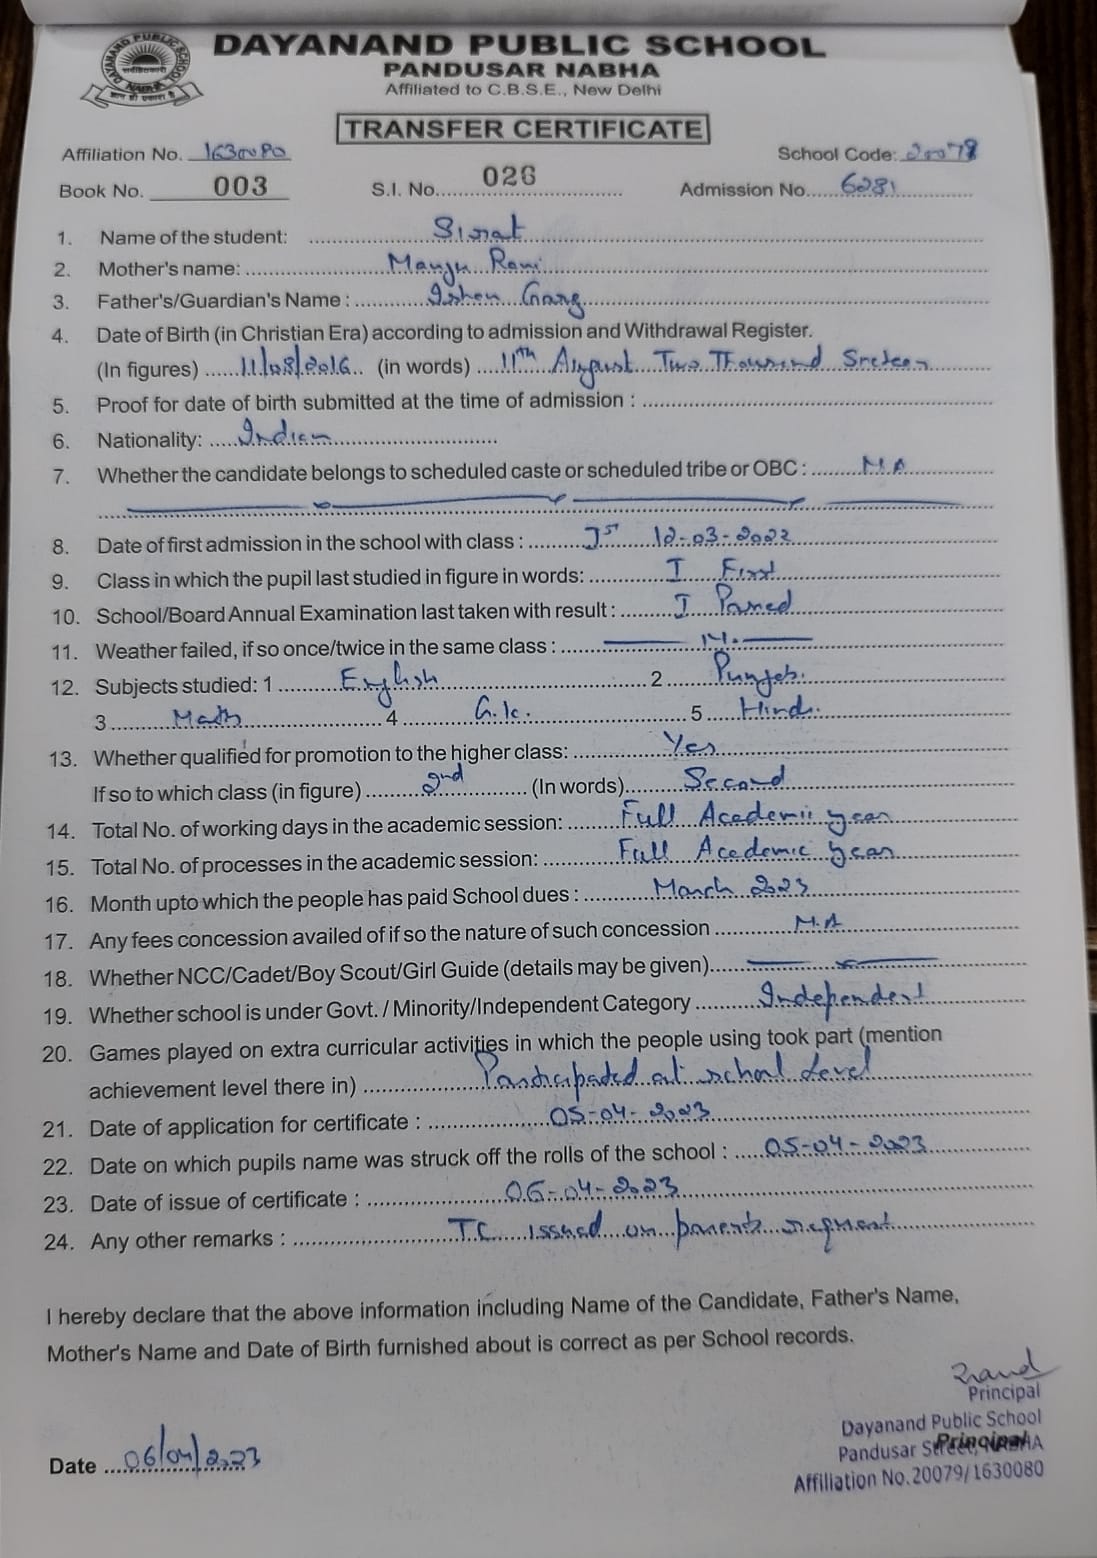 DAYANAND PUBLIC SCHOOL
PANDUSAR NABHA
Affiliated to C.B.S.E., New Delhi
TRANSFER CERTIFICATE
Affiliation No. 1630080
School Code: 20079
Book No. 003 S.I. No. 026 Admission No. 6281
1. Name of the student: Sirat
2. Mother's name: Manju Rani
3. Father's/Guardian's Name : Garg
4. Date of Birth (in Christian Era) according to admission and Withdrawal Register.
(In figures) 11/08/2016 (in words) 11th August Two Thousand Sixteen
5. Proof for date of birth submitted at the time of admission :
6. Nationality: Indian
7. Whether the candidate belongs to scheduled caste or scheduled tribe or OBC : N.A
8. Date of first admission in the school with class : Ist 12-03-2022
9. Class in which the pupil last studied in figure in words: I First
10. School/Board Annual Examination last taken with result : I Passed
11. Weather failed, if so once/twice in the same class : N.
12. Subjects studied: 1 English 2 Punjabi
3 Math 4 G.k. 5 Hindi
13. Whether qualified for promotion to the higher class: Yes
If so to which class (in figure) 2nd (In words) Second
14. Total No. of working days in the academic session: Full Academic year
15. Total No. of processes in the academic session: Full Academic year
16. Month upto which the people has paid School dues : March 2023
17. Any fees concession availed of if so the nature of such concession N.A
18. Whether NCC/Cadet/Boy Scout/Girl Guide (details may be given)
19. Whether school is under Govt. / Minority/Independent Category Independent
20. Games played on extra curricular activities in which the people using took part (mention
achievement level there in) Participated at school level
21. Date of application for certificate : 05-04-2023
22. Date on which pupils name was struck off the rolls of the school : 05-04-2023
23. Date of issue of certificate : 06-04-2023
24. Any other remarks : TC issued on parents request
I hereby declare that the above information including Name of the Candidate, Father's Name,
Mother's Name and Date of Birth furnished about is correct as per School records.
Principal
Dayanand Public School
Pandusar Street, NABHA
Principal
Affiliation No.20079/1630080
Date 06/04/2023